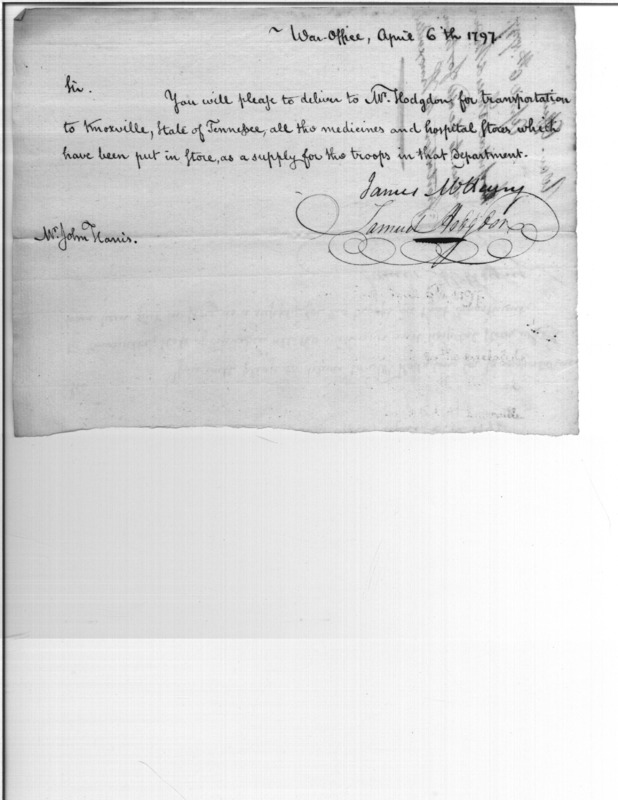 War-Office, April 6th 1797.
Sir.
You will please to deliver to Mr. Hodgdon, for transportation
to Knoxville, State of Tennessee, all the medicines and hospital Stores which
have been put in Store, as a supply for the troops in that Department.
James McHenry
Samuel Hodgdon
Mr. John Harris.